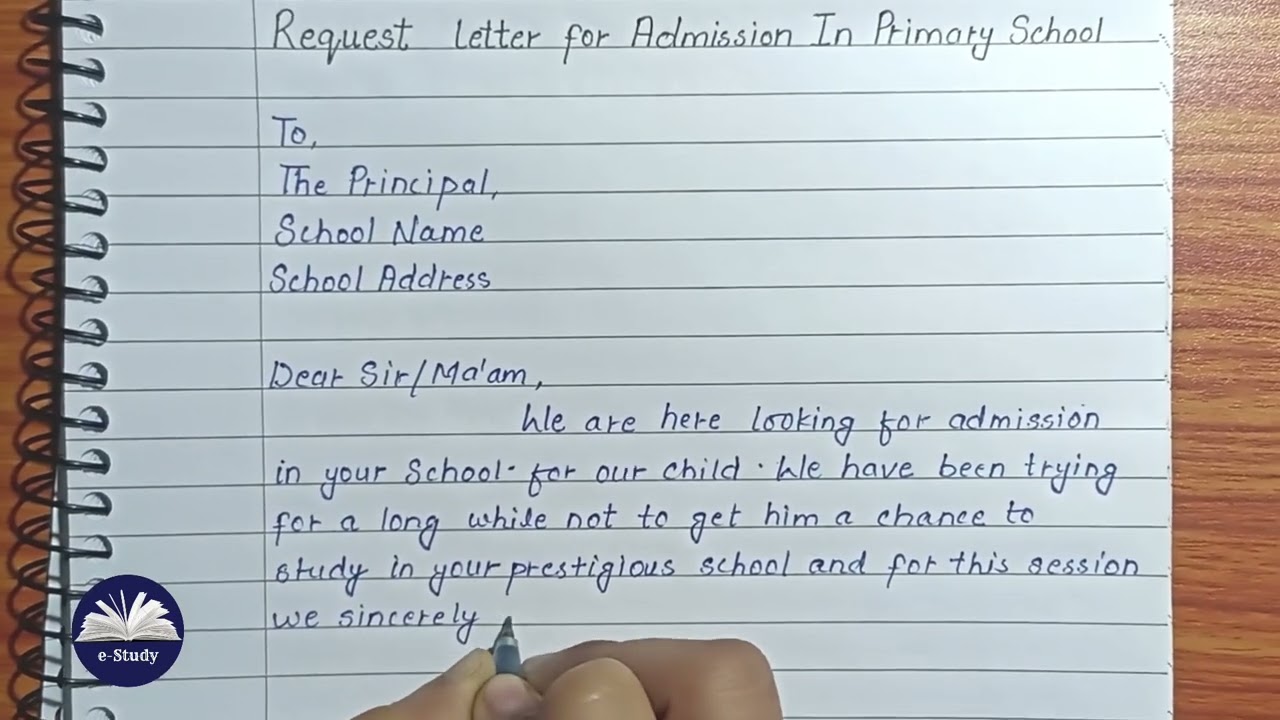 Request Letter for Admission In Primary School
To,
The Principal,
School Name
School Address
Dear Sir/Ma'am,
We are here looking for admission
in your School. for our child. We have been trying
for a long while not to get him a chance to
study in your prestigious school and for this session
we sincerely
e-Study